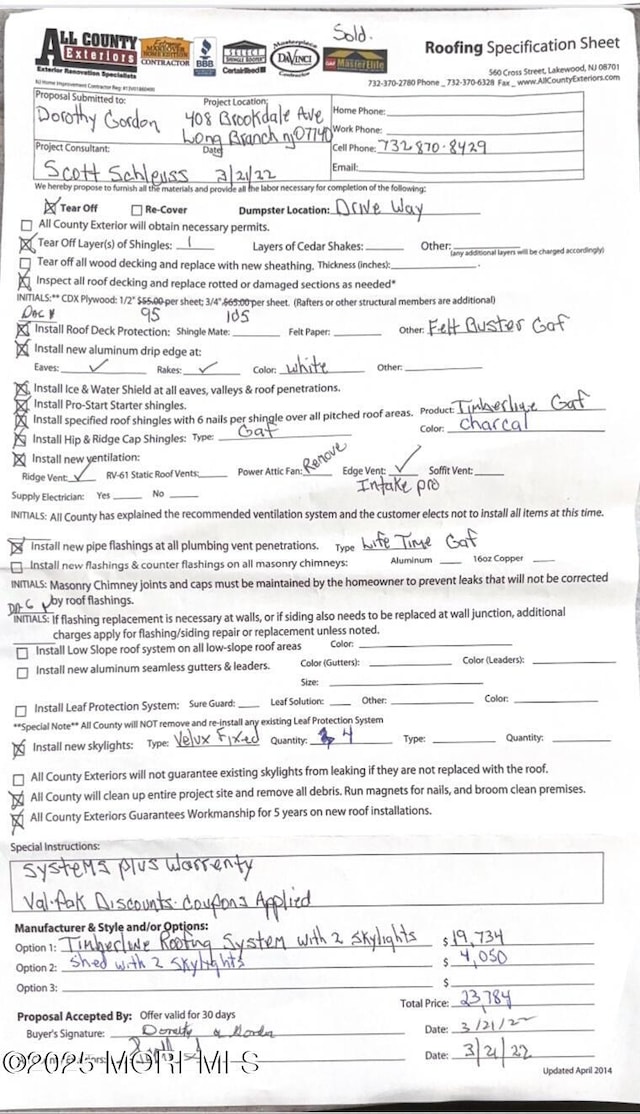 Sold.
ALL COUNTY
Exteriors
Exterior Renovation Specialists
EXTREME MAKEOVER HOME EDITION CONTRACTOR
BBB
SELECT SHINGLE ROOFER
CertainTeed
Masterpiece
DaVinci
Contractor
GAF MasterElite
Roofing Specification Sheet
560 Cross Street, Lakewood, NJ 08701
732-370-2780 Phone _ 732-370-6328 Fax _ www.AllCountyExteriors.com
Proposal Submitted to:
Dorothy Gordon
Project Location:
408 Brookdale Ave
Long Branch nj 07740
Home Phone:
Work Phone:
Cell Phone: 732 870-8429
Email:
Project Consultant:
Scott Schleuss
Date:
3/21/22
We hereby propose to furnish all the materials and provide all the labor necessary for completion of the following:
Tear Off Re-Cover Dumpster Location: Drive Way
All County Exterior will obtain necessary permits.
Tear Off Layer(s) of Shingles: 1 Layers of Cedar Shakes: Other:
(any additional layers will be charged accordingly)
Tear off all wood decking and replace with new sheathing. Thickness (inches):
Inspect all roof decking and replace rotted or damaged sections as needed*
INITIALS:** CDX Plywood: 1/2" $55.00 per sheet; 3/4" $65.00 per sheet. (Rafters or other structural members are additional)
95 105
Install Roof Deck Protection: Shingle Mate: Felt Paper: Other: Felt Buster Gaf
Install new aluminum drip edge at:
Eaves: ✓ Rakes: ✓ Color: white Other:
Install Ice & Water Shield at all eaves, valleys & roof penetrations.
Install Pro-Start Starter shingles.
Install specified roof shingles with 6 nails per shingle over all pitched roof areas. Product: Timberline Gaf
Install Hip & Ridge Cap Shingles: Type: Gaf Color: Charcal
Install new ventilation:
Ridge Vent: ✓ RV-61 Static Roof Vents: Power Attic Fan: Remove Edge Vent: ✓ Soffit Vent:
Intake pro
Supply Electrician: Yes No
INITIALS: All County has explained the recommended ventilation system and the customer elects not to install all items at this time.
Install new pipe flashings at all plumbing vent penetrations. Type Life Time Gaf
Install new flashings & counter flashings on all masonry chimneys: Aluminum 16oz Copper
INITIALS: Masonry Chimney joints and caps must be maintained by the homeowner to prevent leaks that will not be corrected
by roof flashings.
INITIALS: If flashing replacement is necessary at walls, or if siding also needs to be replaced at wall junction, additional
charges apply for flashing/siding repair or replacement unless noted.
Install Low Slope roof system on all low-slope roof areas Color:
Install new aluminum seamless gutters & leaders. Color (Gutters): Color (Leaders):
Size:
Install Leaf Protection System: Sure Guard: Leaf Solution: Other: Color:
**Special Note** All County will NOT remove and re-install any existing Leaf Protection System
Install new skylights: Type: Velux Fixed Quantity: 4 Type: Quantity:
All County Exteriors will not guarantee existing skylights from leaking if they are not replaced with the roof.
All County will clean up entire project site and remove all debris. Run magnets for nails, and broom clean premises.
All County Exteriors Guarantees Workmanship for 5 years on new roof installations.
Special Instructions:
Systems plus Warrenty
Val-Pak Discounts-Coupons Applied
Manufacturer & Style and/or Options:
Option 1: Timberline Roofing System with 2 skylights $ 19,734
Option 2: Shed with 2 skylights $ 4,050
Option 3: $
Total Price: 23,784
Proposal Accepted By: Offer valid for 30 days
Buyer's Signature: Date: 3/21/22
Date: 3/21/22
Updated April 2014
©2025 MORFMLS